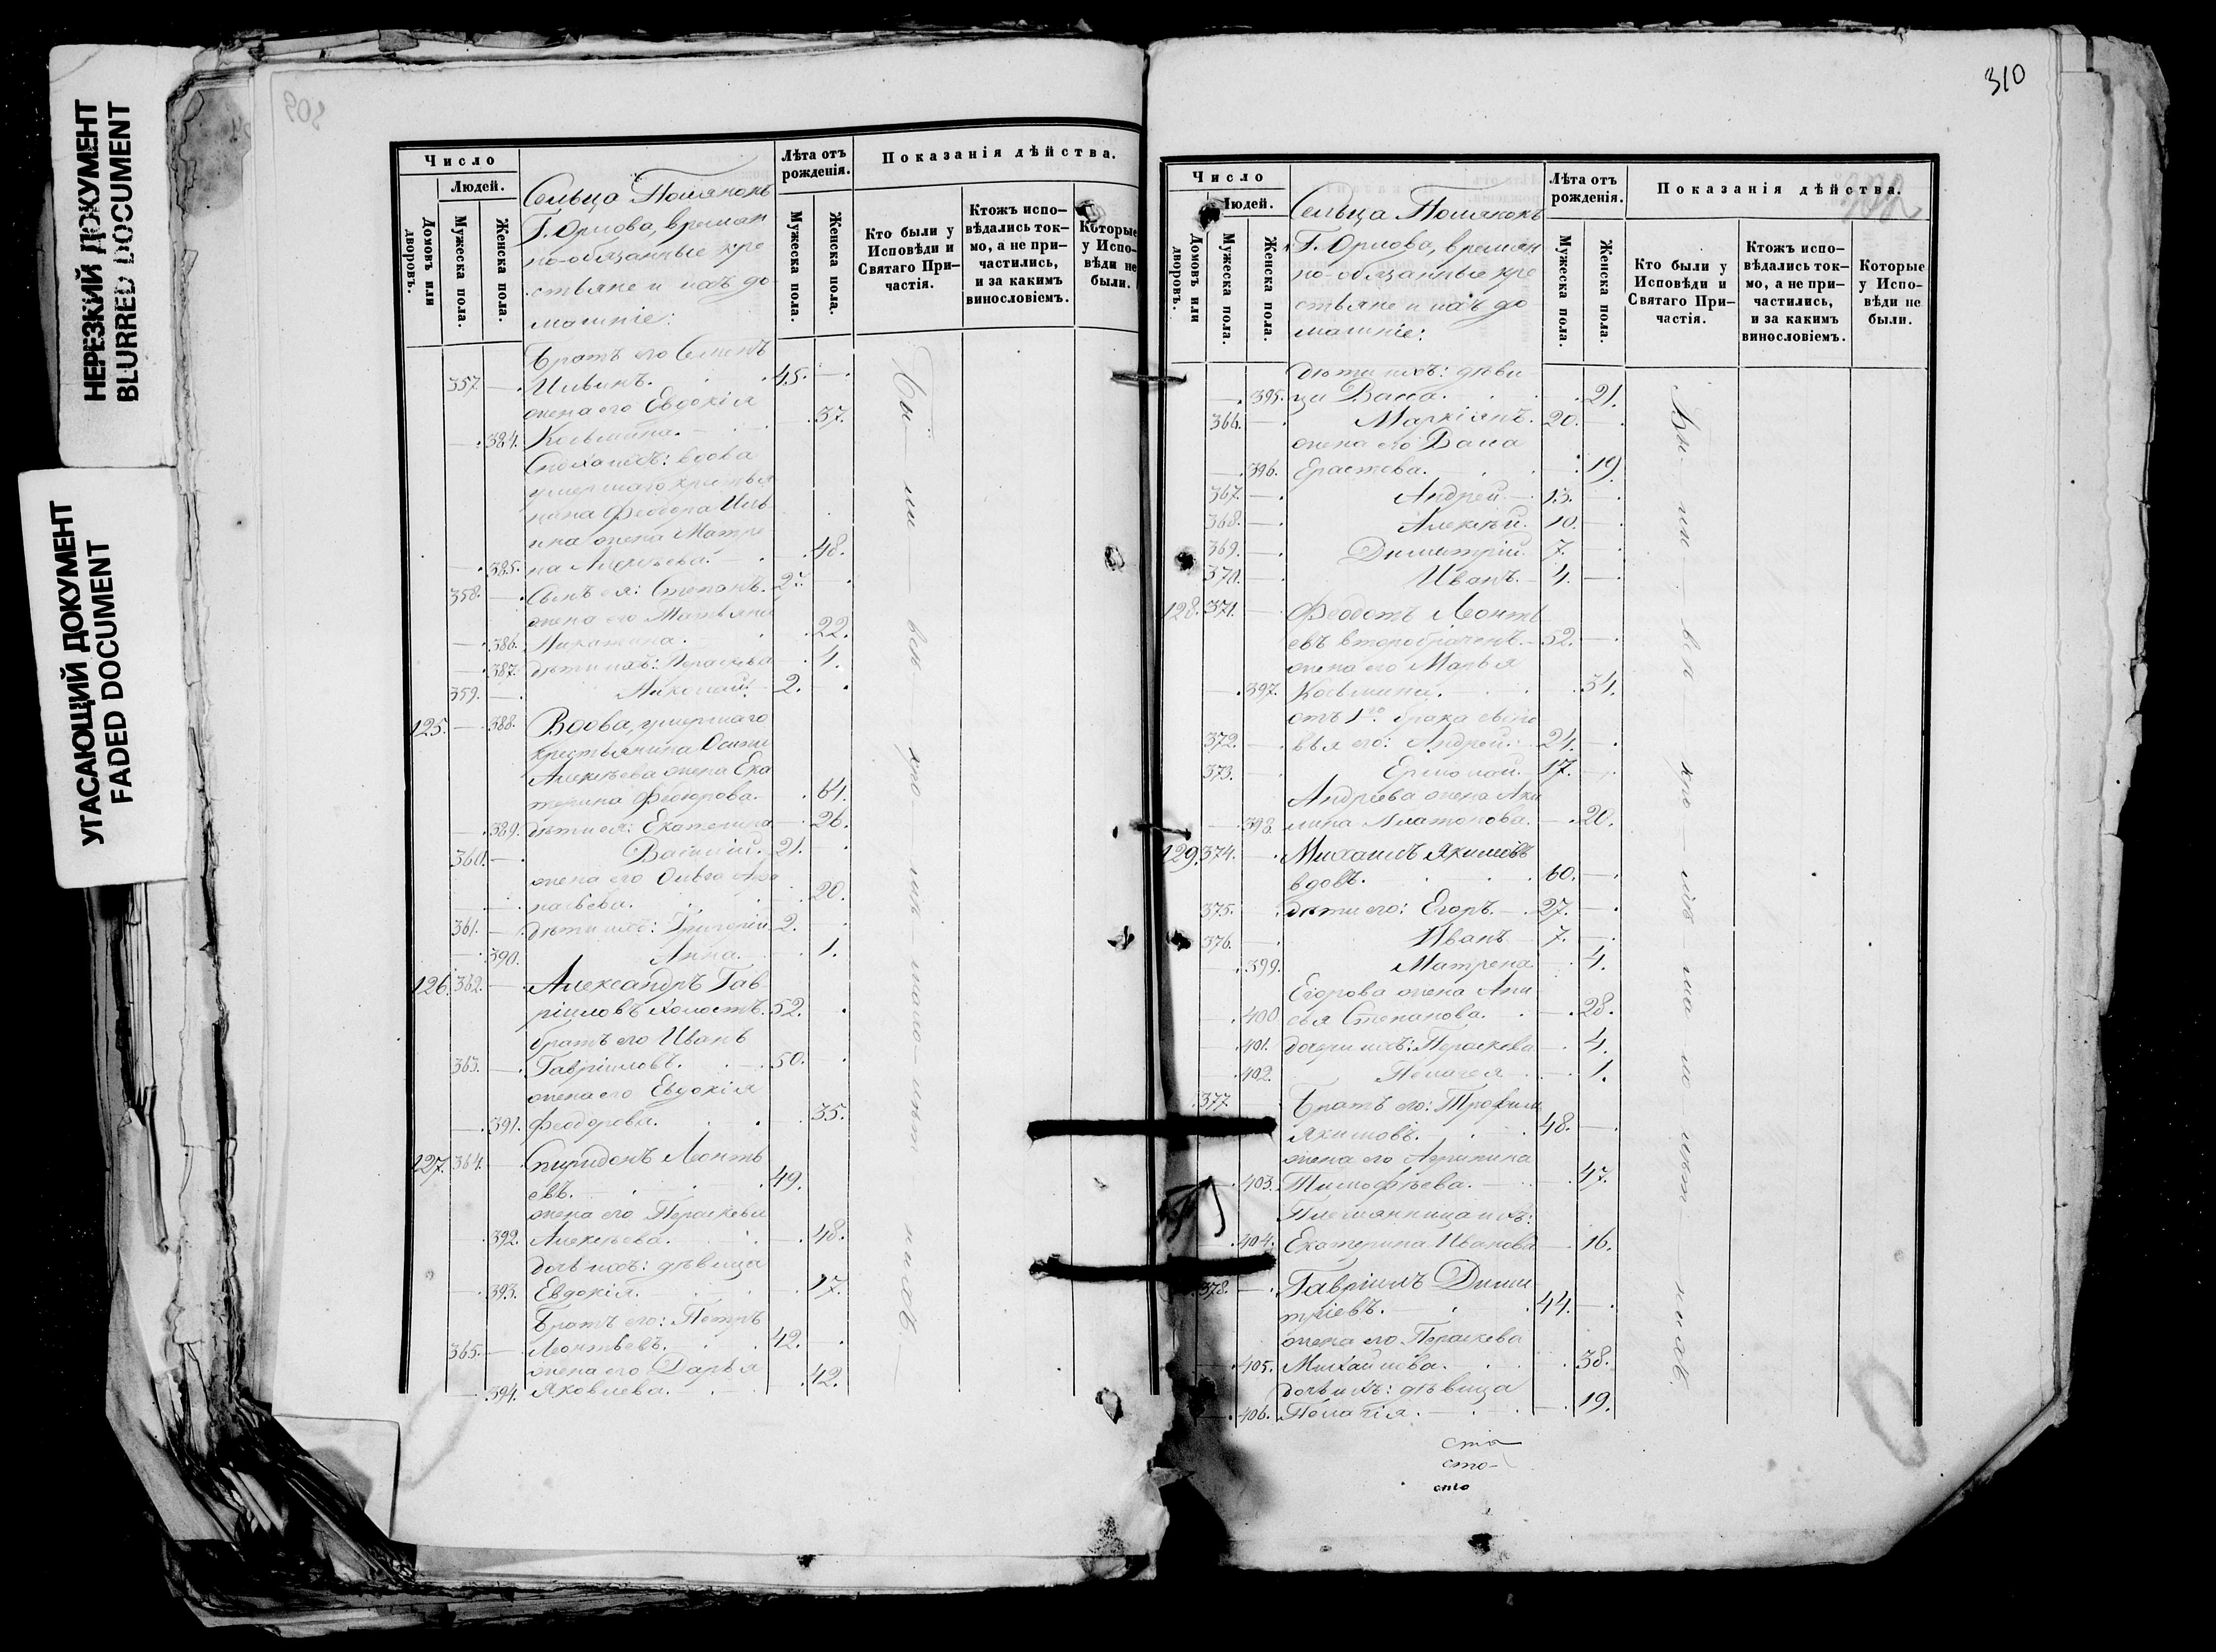 НЕРЕЗКИЙ ДОКУМЕНТ
BLURRED DOCUMENT
УГАСАЮЩИЙ ДОКУМЕНТ
FADED DOCUMENT
Число
Людей.
Домовъ или дворовъ.
Мужеска пола.
Женска пола.
Сельца
Г. Орлова, времен
но-обязанные кре
стьяне и ихъ до
машніе:
Лѣта отъ рожденія.
Мужеска пола.
Женска пола.
Показанія дѣйства.
Кто были у Исповѣди и Святаго При-частія.
Ктожъ испо-вѣдались ток-мо, а не при-частились, и за какимъ винословіемъ.
Которые у Испо-вѣди не были.
Братъ его Семенъ
357. — Ильинъ. 45. —
жена его Евдокія
— 384. Козьмина. 37.
Сноха ихъ: вдова
умершаго крестья
нина Феодора Иль
ина жена Матре
— 385. на Алексѣева. — 48.
358. — Сынъ ея: Степанъ. 27. —
жена его
— 386. 22.
— 387. дѣти ихъ: Параскева — 4.
359. — Николай. 2. —
125. — 388. Вдова, умершаго
крестьянина Осипа
Алексѣева жена Ека
терина Феодорова. 64.
— 389. дѣти ея: Екатерина — 26.
360. — Василій. 21. —
жена его Ольга Афа
насьева. 20.
361. — дѣти ихъ: Григорій 2. —
— 390. Анна. — 1.
126. 362. — Александръ Гав
ріиловъ холостъ. 52.
братъ его Иванъ
363. — Гавріиловъ. 50.
жена его Евдокія
— 391. Феодорова. 35.
127. 364. — Спиридонъ Леонть
евъ. 49.
жена его Параскева
392. Алексѣева. 48.
дочь ихъ: дѣвица
— 393. Евдокія. 17.
Братъ его: Петръ
365. — Леонтьевъ. 42. —
жена его Дарья
— 394. Яковлева. — 42.
310
Число
Людей.
Домовъ или дворовъ.
Мужеска пола.
Женска пола.
Сельца
Г. Орлова, времен
но-обязанные кре
стьяне и ихъ до
машніе:
Лѣта отъ рожденія.
Мужеска пола.
Женска пола.
Показанія дѣйства.
Кто были у Исповѣди и Святаго При-частія.
Ктожъ испо-вѣдались ток-мо, а не при-частились, и за какимъ винословіемъ.
Которые у Испо-вѣди не были.
дѣти ихъ: дѣви
— 395. ца Васса. 21.
366. — Маркіянъ. 20. —
жена его
— 396. Ерастова. 19.
367. — Андрей — 13. —
368. — Алексѣй. 10. —
369. — Димитрій. 7. —
370. — Иванъ. — 4. —
128. 371. — Феодотъ Леонть
евъ второбраченъ. — 52. —
жена его Марья
— 397. Козьмина. 34.
отъ 1го брака сыно
372. — вья его: Андрей. 24. —
373. — Ермолай. 17. —
Андреева жена Аку
— 398. лина Платонова. — 20.
129. 374. — Михаилъ Якимовъ
вдовъ. 60. —
375. — дѣти его: Егоръ. — 27. —
376. — Иванъ 7. —
— 399. Матрена 4.
Егорова жена Ани
— 400 сья Степанова. — 28.
401. дочери ихъ: Параскева 4.
402. Пелагея — 1.
377. Братъ его: Трофимъ
Якимовъ. 48. —
жена его Агрипина
— 403. Тимофѣева. — 47.
Племянница ихъ:
— 404. Екатерина Иванова — 16.
378. — Гавріилъ Дими
тріевъ. — 44. —
жена его Параскева
— 405. Михайлова. 38.
дочь ихъ: дѣвица
— 406. Пелагія. — 19.
сто
сто
сто